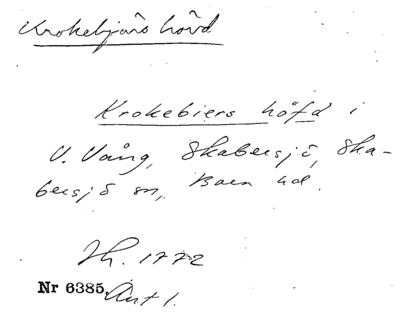 Krokebjärs hövd
Krokebiers höfd i
V. Vång, Skabersjö, Ska-
bersjö sn, Bara hd.
Jh. 1772
Nr 6385. Akt 1.